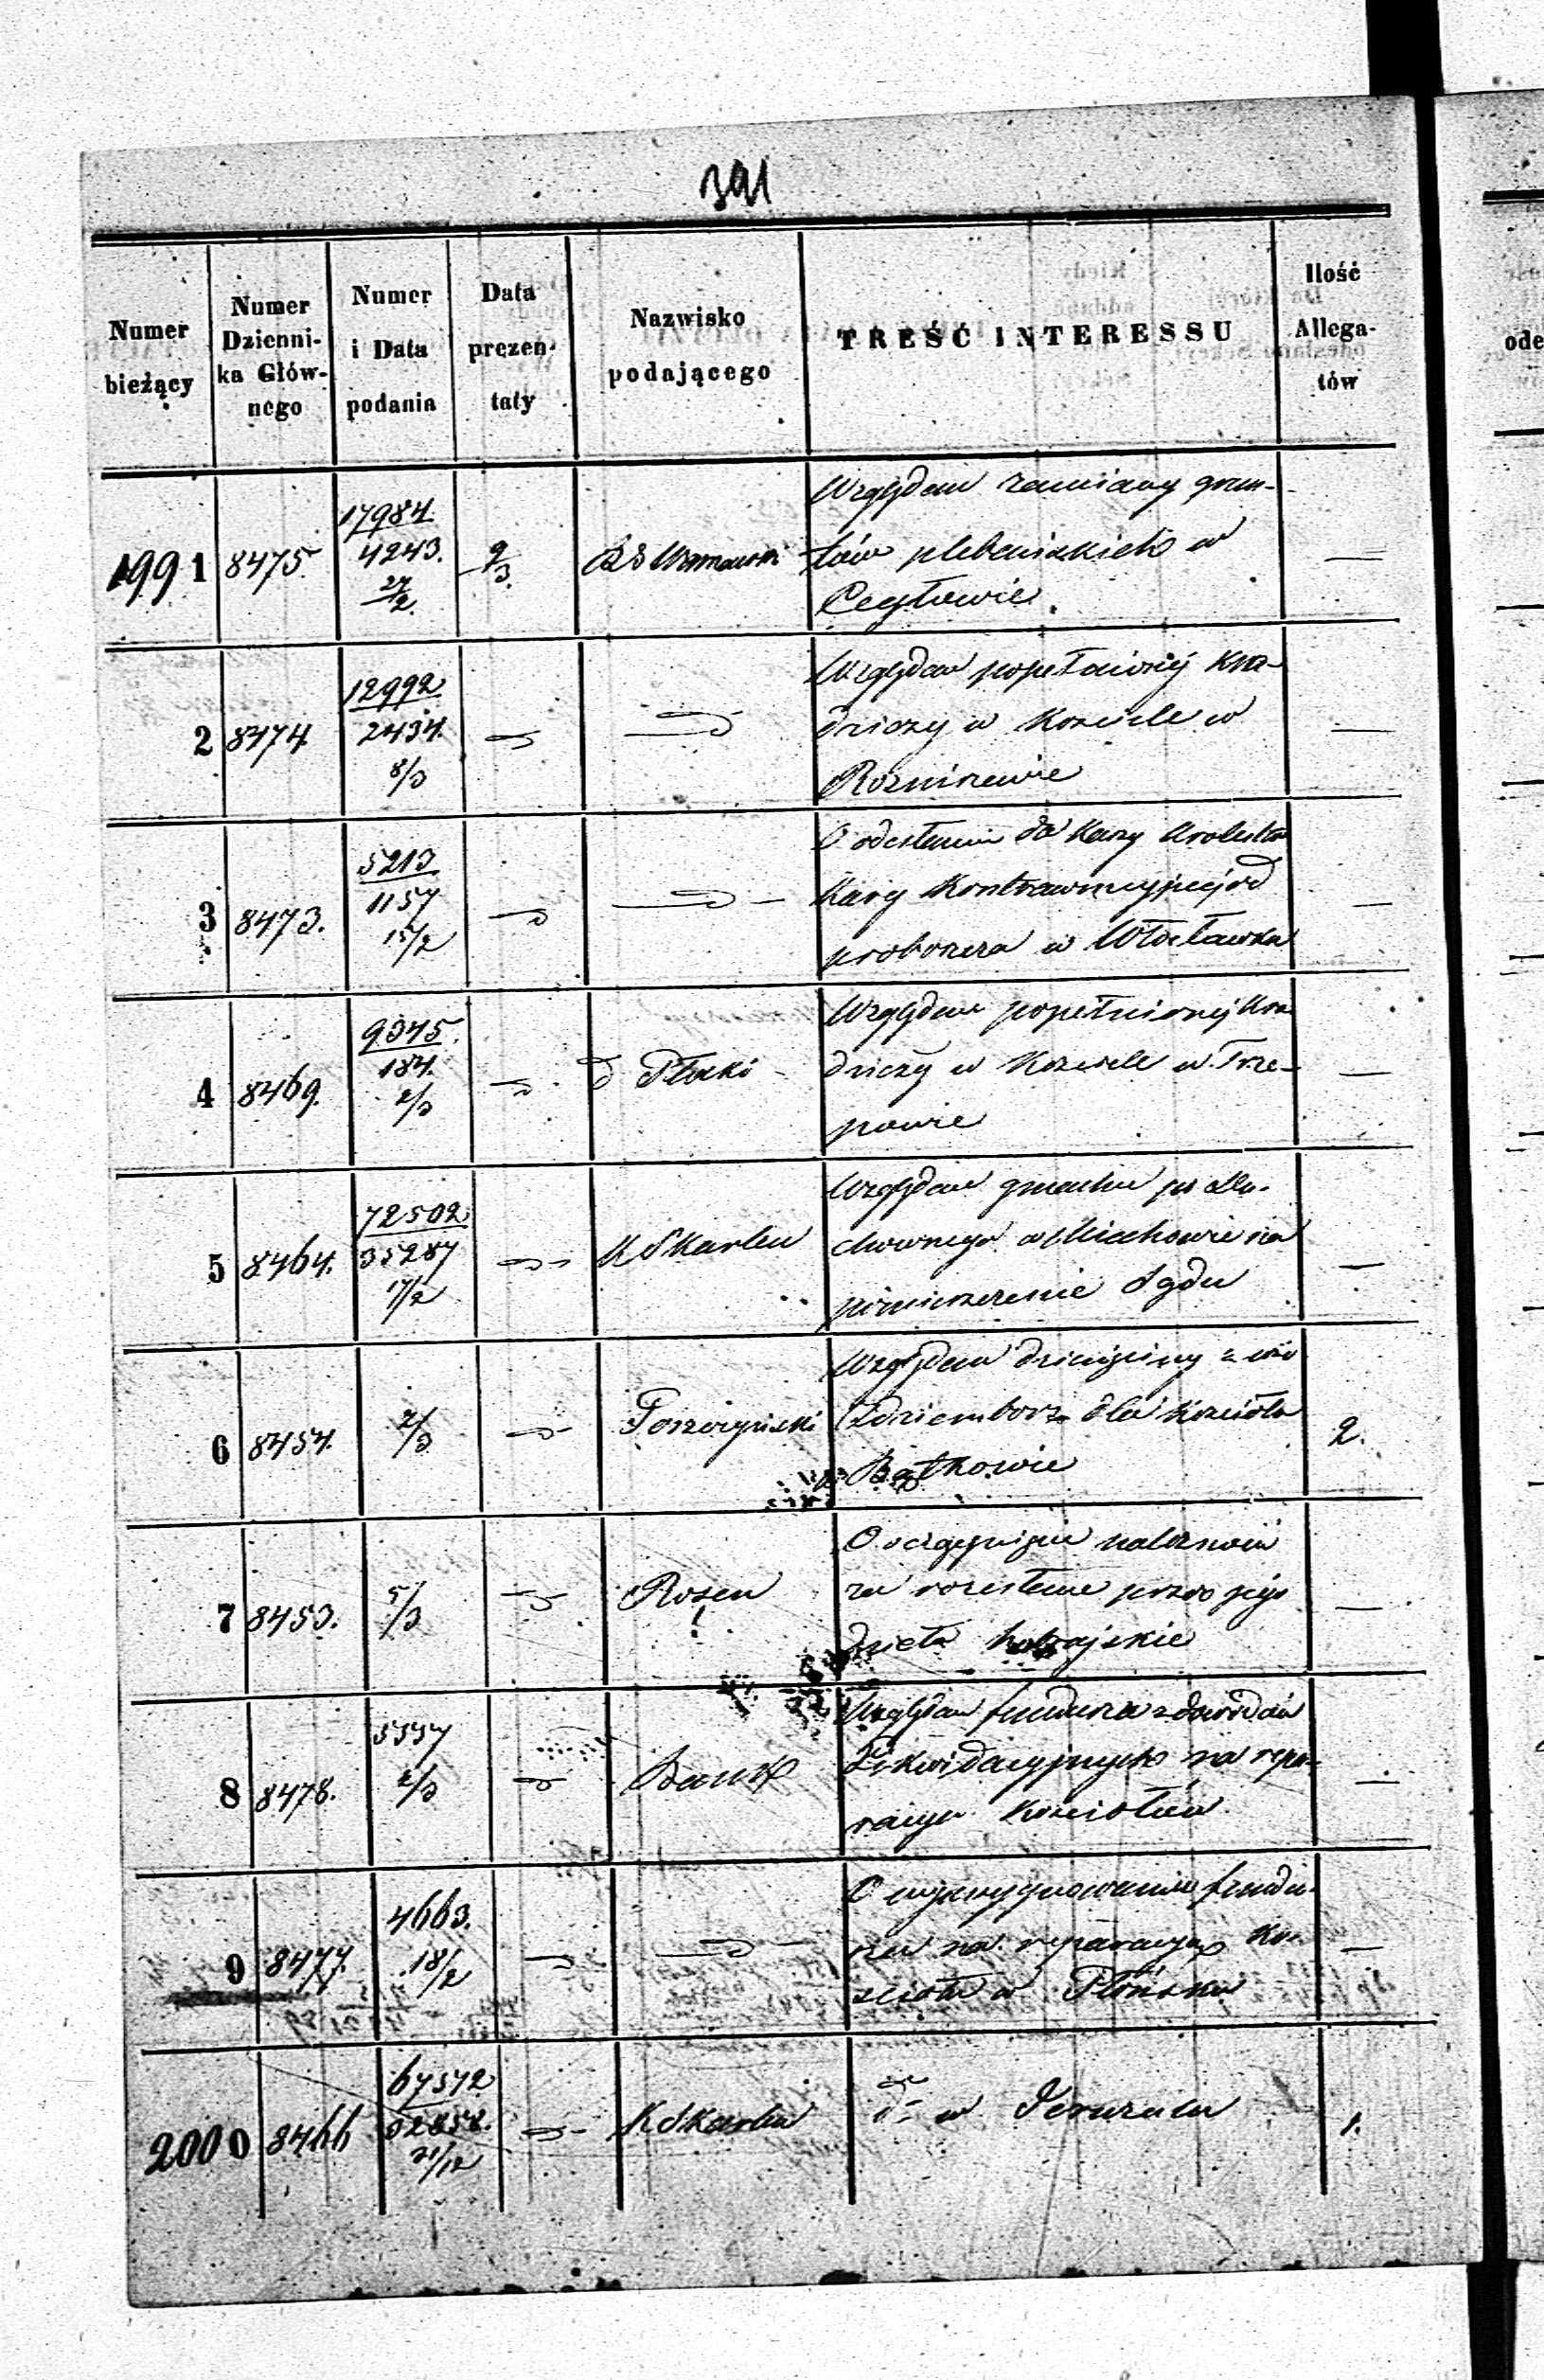 391
Numer bieżący
Numer Dzienni-ka Głów-nego
Numer i Data podania
Data prezen-taty
Nazwisko podającego
TREŚĆ INTERESSU
Ilość Allega-tów
1991 8475. 17984. 4243. 27/2. 9/3. Względem zamiany grun-
tów plebańskich w
Cegłowie. —
2 8474. 12992 2434. 8/3 Względem popełnionéj kra-
dzieży w Kościele w
Rozniszewie —
3 8473. 5213 1157 15/2 O odesłaniu do Kassy
Kary Kontrawencyjnéj od
proboszcza w Włocławku —
4 8469. 9345. 184. 2/3 d Płocki Względem popełnionéj kra-
dzieży w Kościele w Trze-
powie —
5 8464. 72502 35287 17/2 K S Karbu Względem gmachu po du-
chownego w Miechowie na
pomieszczenie Sądu —
6 8454. 7/3 Względem dziesięciny z wsi
Zdziemborz dla Kościoła
w Bątkowie 2.
7 8453. 5/3 Rosen O ściągnięcie należności
za rozesłane przez jego
dzieła —
8 8478. 5557 2/3 Bank Względem funduszu z dowodów
Likwidacyjnych na repa-
racye Kościołów —
9 8477. 4663. 18/2 O wyasygnowanie fundu-
szu na reparacyę Ko-
ścioła w Płońsku —
2000 8466 67572 32858. 31/12 K S Karbu dto w Jeruzalu 1.
ode